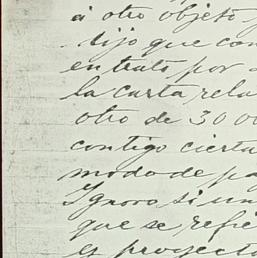 á otro objeto
dijo que con
en trato por
la carta rela
otro de 30 00
contigo cierta
modo de pa
Ignoro si un
que se refie
es proyecto